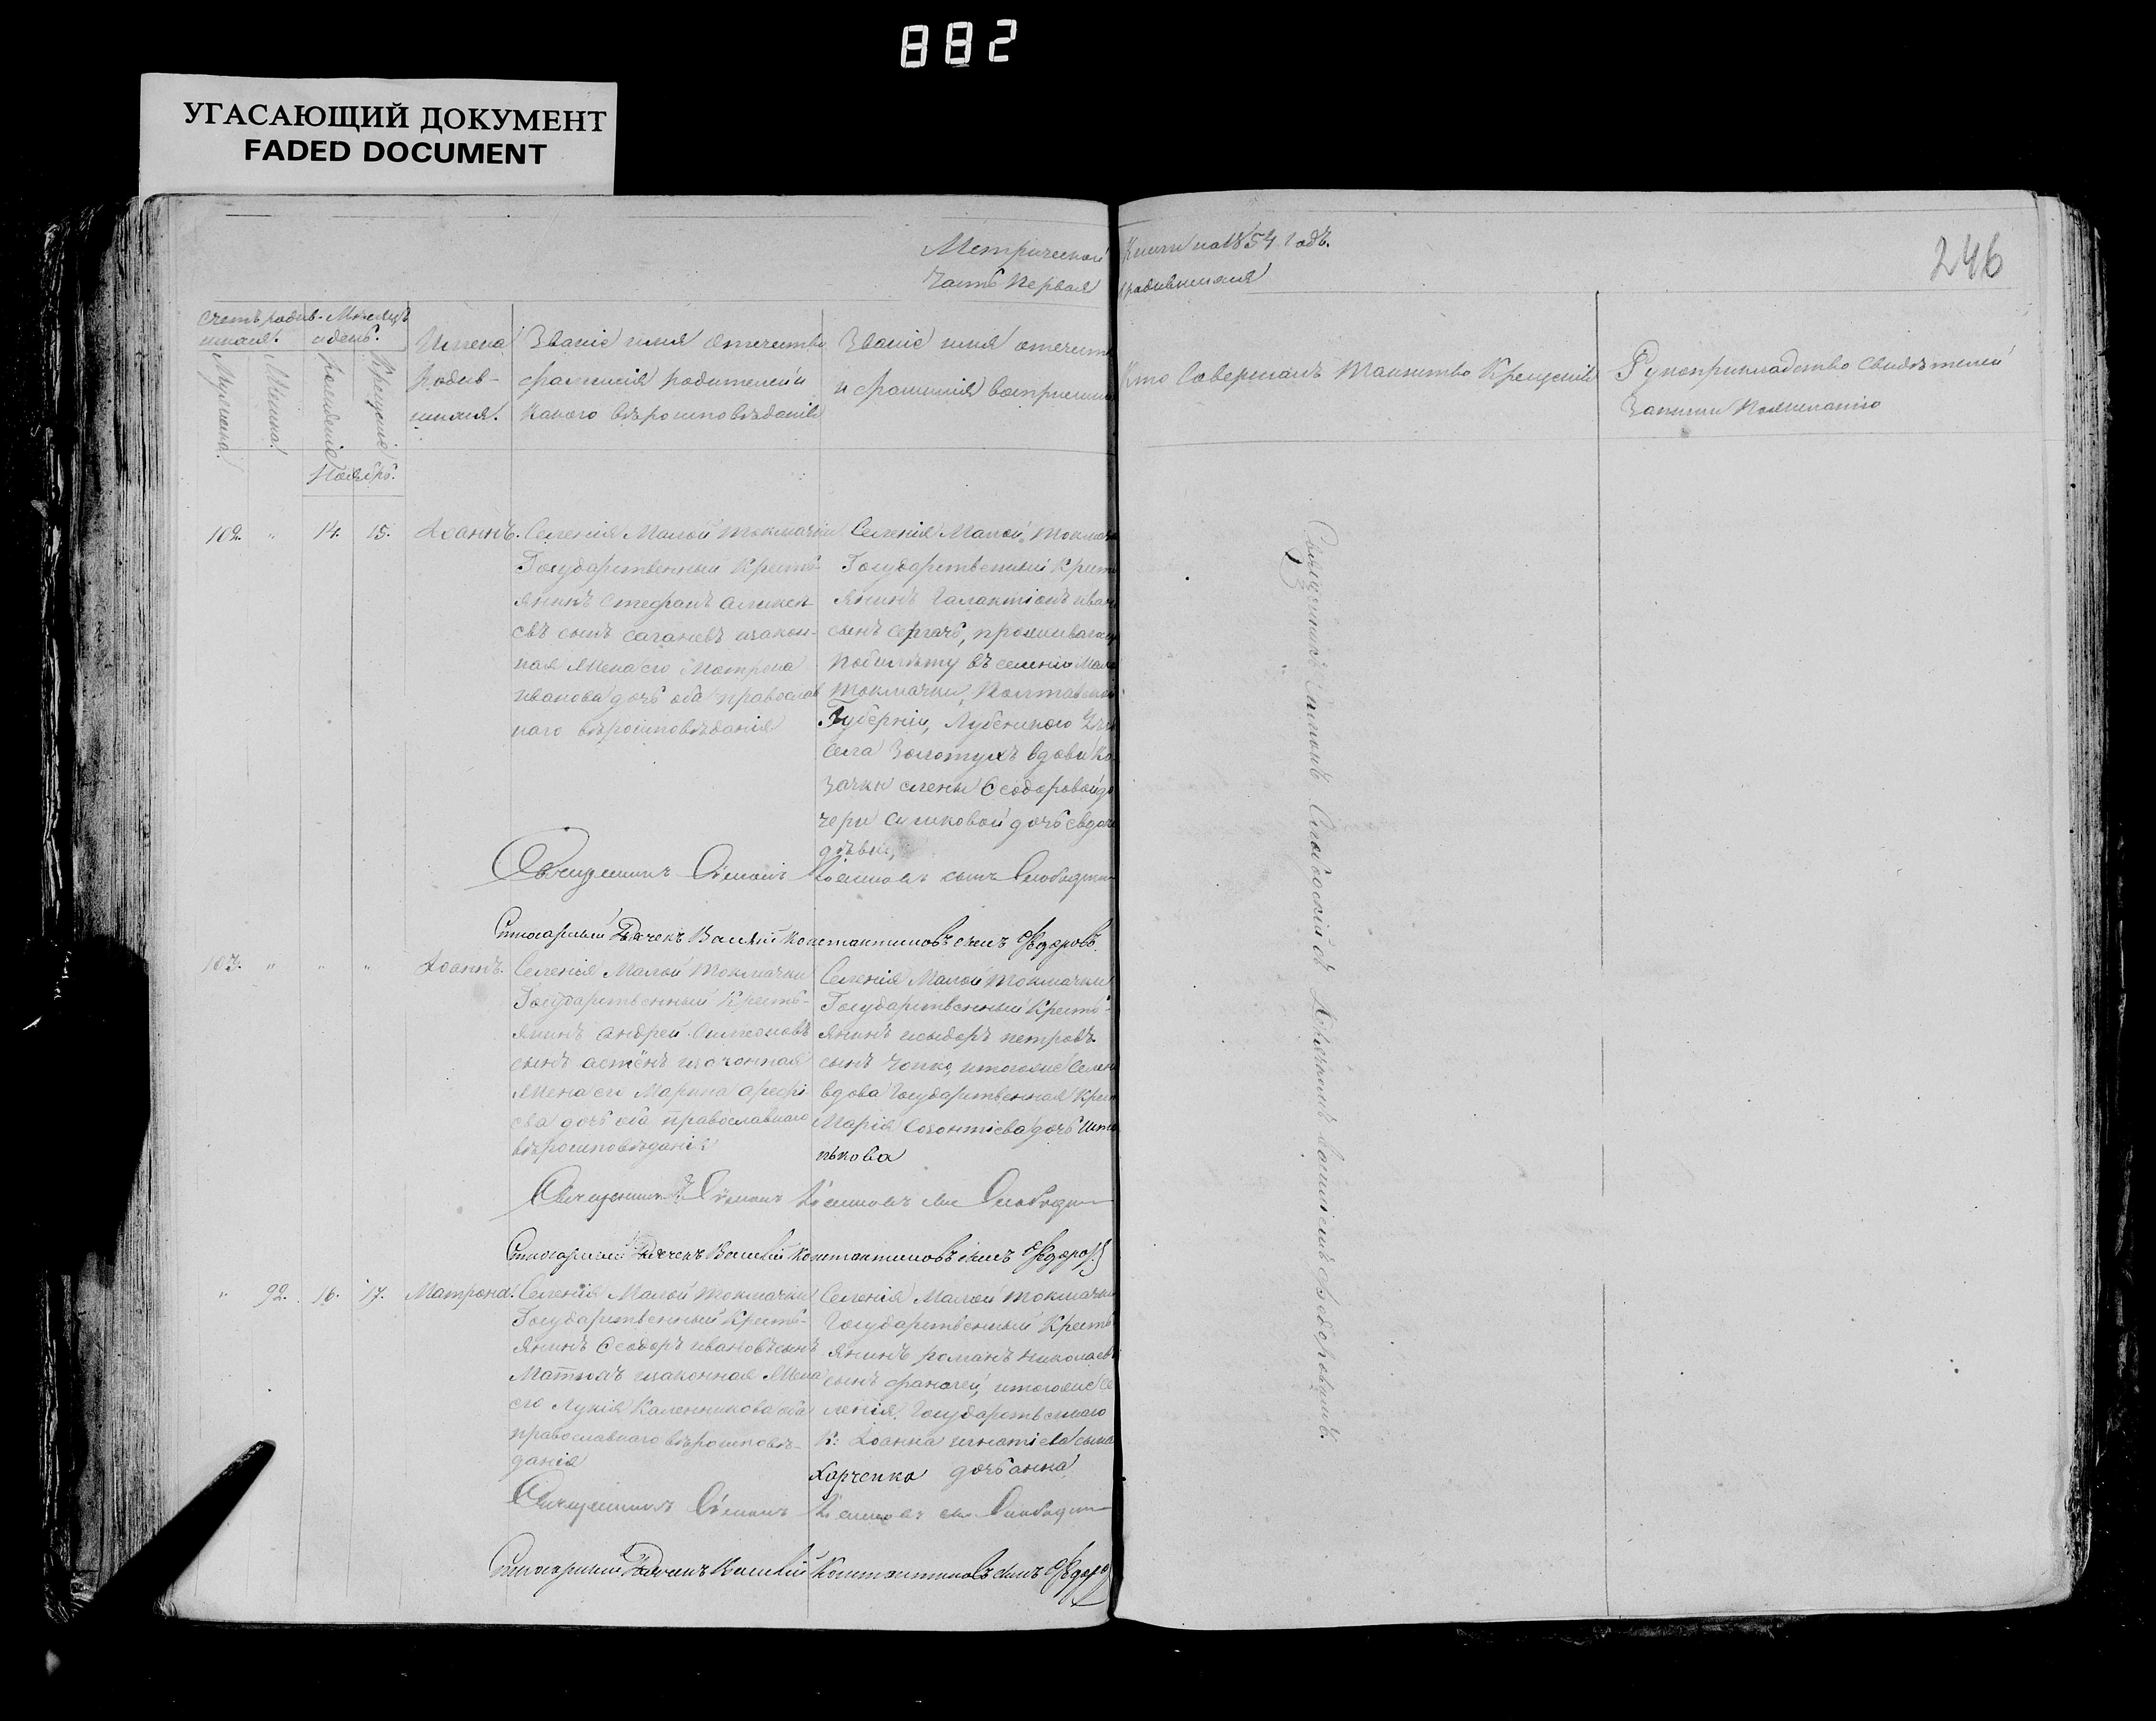 882
УГАСАЮЩИЙ ДОКУМЕНТ
FADED DOCUMENT
246
Метрической Книги на 1854 годъ.
Часть первая о родившихся
Счетъ родив-шихся.
Мужеска.
Женска.
Мѣсяцъ и день.
Рожденія
Крещенія
Имена родив-шихся.
Званіе имя отечество
фамилія родителей и
какого вѣроисповѣданія
Званіе имя отечест
и фамилія воспріемни
Кто совершалъ таинство Крещенія
Рукоприкладство свидѣтелей
записи по желанію
Ноябрь.
102. " 14. 15. Іоаннъ.
Селенія Малой Токмачки
Государственный Кресть-
янинъ Стефанъ Алексѣ-
евъ сынъ и закон-
ная жена его Матрена
Иванова дочь оба православ
наго вѣроисповѣданія
Селенія Малой Токмачк
Государственный Кресть
янинъ Галактіонъ Иван
сынъ Сергачъ, проживающ
по билету въ селеніи Мало
Токмачки, Полтавской
Губерніи, Лубенского Уѣз
села Золотухъ вдовы Ко
зачки Елены Ѳеодоровой до
чери дочь Евдок
дѣвка,
Священникъ Симонъ сынъ
Стихарный Дьячекъ Василій Константиновъ сынъ Федоровъ.
103. " " " Іоаннъ.
Селенія Малой Токмачки
Государственный Кресть-
янинъ Андрей Симеоновъ
сынъ и законная
жена его Марина Арефі-
ева дочь оба православнаго
вѣроисповѣданія
Селенія Малой Токмачки
Государственный Кресть-
янинъ Исидоръ Петровъ
сынъ и тогоже Селен
вдова Государственная Крест
Марія Созонтіева дочь
пькова
Священникъ Симонъ
Стихарный Дьячекъ Василій Константиновъ сынъ Федоров
" 92. 16. 17. Матрона.
Селенія Малой Токмачки
Государственный Кресть-
янинъ Ѳеодоръ Ивановъ сынъ
и законная жена
его Лукія Каленникова оба
православнаго вѣроисповѣ-
данія
Селенія Малой Токмачки
Государственный Кресть
янинъ Романъ Николаевъ
сынъ и тогоже Се
ленія Государственнаго
К: Іоанна Игнатіева сына
Харченка дочь Анна
Священникъ Симонъ
Стихарный Дьячекъ Василій Константиновъ сынъ Федоро
Священникъ Симонъ съ Дьячкомъ Василіемъ Федоровымъ.